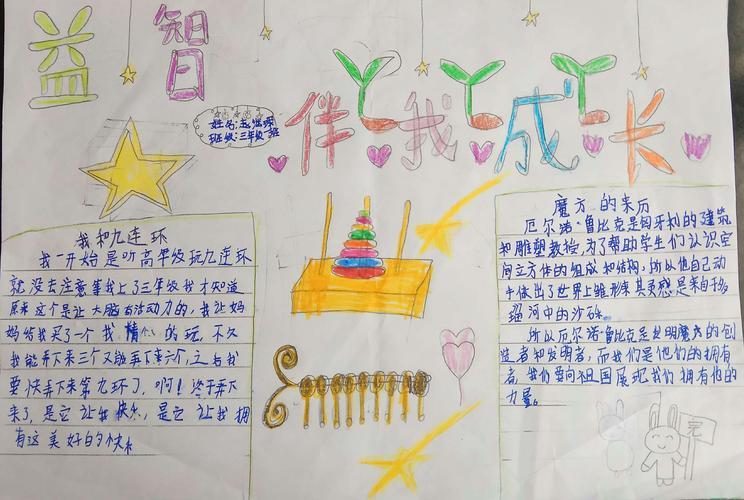 益智
伴我成长
姓名:赵
班级:三年级一班
我和九连环
我一开始是听高年级玩九连环
就没去注意等我上了三年级我才知道
原来这个是让大脑有活动力的，我让妈
妈给我买了一个我 的玩，不久
我能弄下来三个又能弄下来六个，之后我
要快弄下来第九环了，啊！终于弄下
来了，是它让我快乐，是它让我拥
有这美好的快乐
魔方的来历
厄尔诺·鲁比克是匈牙利的建筑
和雕塑教授，为了帮助学生们认识空
间立方体的组成和结构，所以他自己动
手做出了世界上雏形来其灵感是来自于多
瑙河中的沙砾。
所以厄尔诺·鲁比克是发明魔方的创
造者知发明者，而我们是他们的拥有
者，我们要向祖国展现我们拥有他的
力量。
完